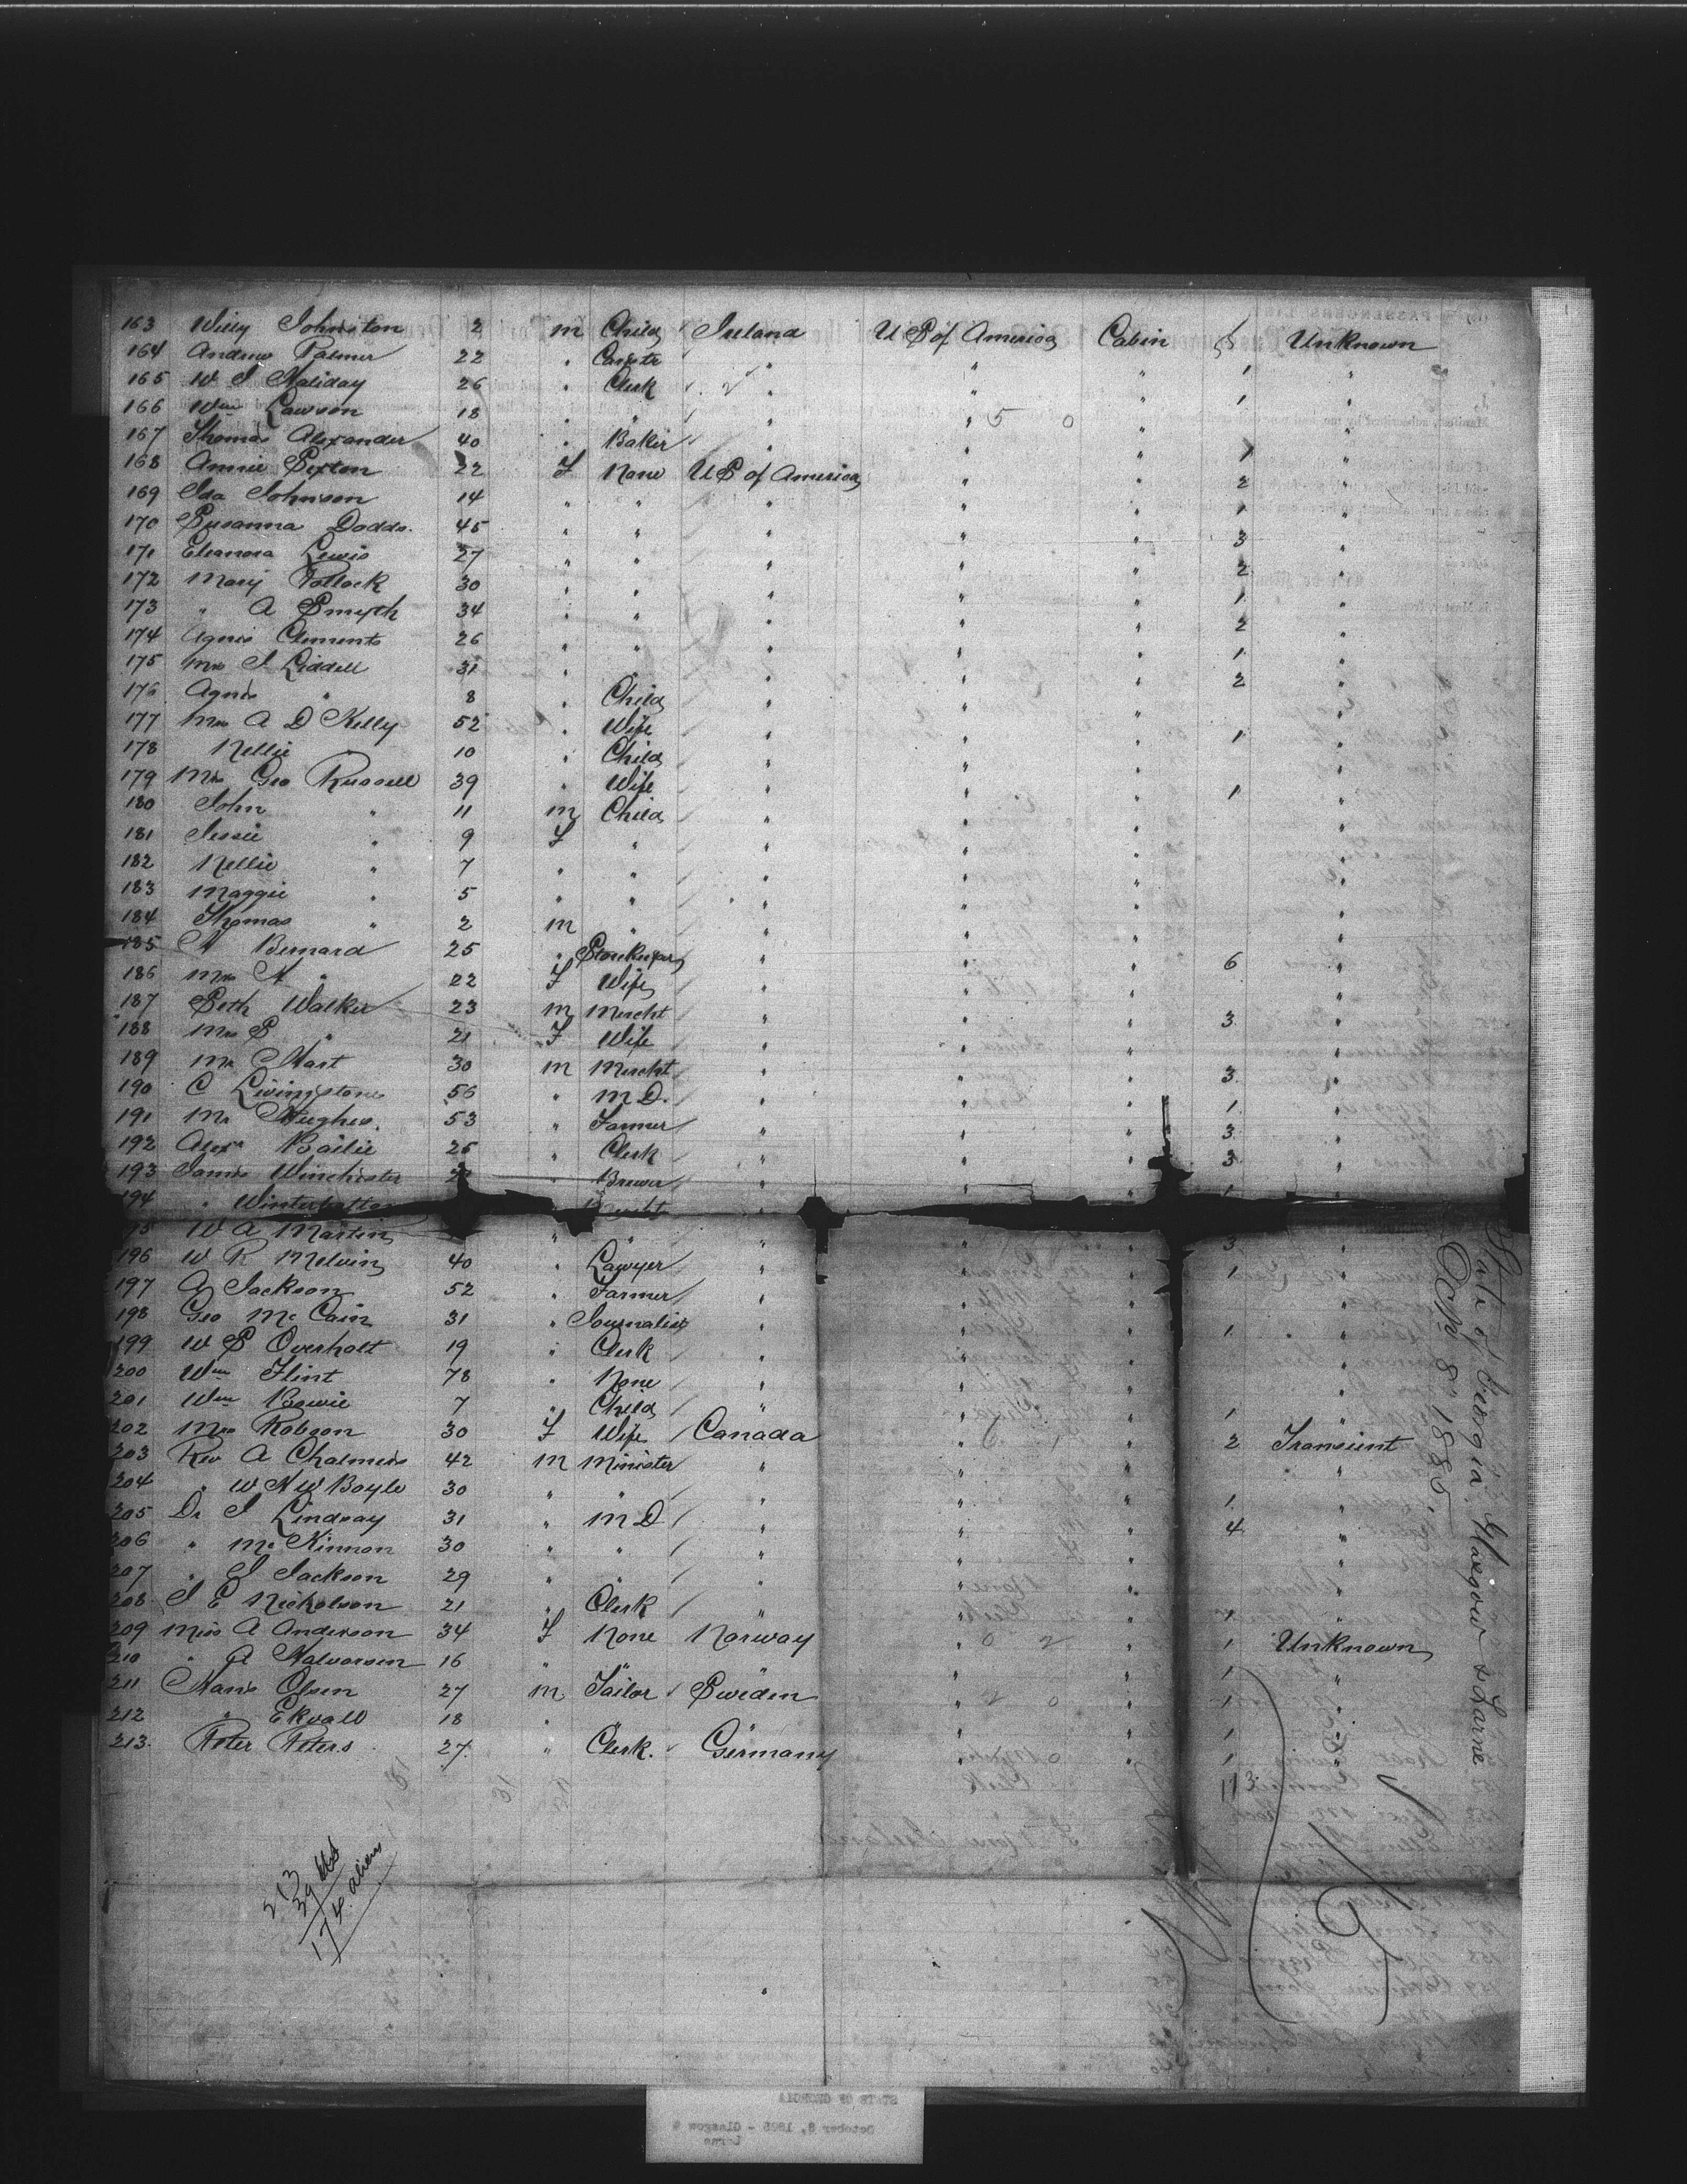 163 Willy Johnston 2 m Child Ireland U S of America Cabin Unknown
164 Andrew Palmer 22 " " " " "
165 W J Haliday 26 " Clerk " " " 1 "
166 Wm Lawson 18 " " " " " 1 "
167 Thomas Alexander 40 " Baker " " " "
168 Annie Sexton 22 F None U S of America " " 1 "
169 Ida Johnson 14 " " " " " 2 "
170 Susanna Dodds. 45 " " " " " 1 "
171 Eleanora Lewis 27 " " " " " 3 "
172 Mary Pollock 30 " " " " " 2 "
173 " A Smyth 34 " " " " " 1 "
174 Agnes Clements 26 " " " " " 2 "
175 Mrs J Liddell 31 " " " " " 1 "
176 Agnes " 8 " Child " " " 2 "
177 Mrs A D Kelly 52 " Wife " " " "
178 Nellie " 10 " Child " " " 1 "
179 Mrs Geo Russell 39 " Wife " " " "
180 John " 11 m Child " " " 1 "
181 Jessie " 9 F " " " " "
182 Nellie " 7 " " " " " "
183 Maggie " 5 " " " " " "
184 Thomas " 2 m " " " " "
185 H Bernard 25 " Storekeeper " " " 6 "
186 Mrs H " 22 F Wife " " " "
187 Seth Walker 23 m Mercht " " " 3 "
188 Mrs S " 21 F Wife " " " "
189 Mr Hart 30 m Mercht " " " 3 "
190 C Livingstone 56 " M D. " " " 1 "
191 Mr Hughes. 53 " Farmer " " " 3 "
192 Alexr Bailie 25 " Clerk " " " 3 "
193 James Winchester " Brewer " " " 1 "
194 " Winterbottom
95 W A Martin " " " " " 3 "
196 W R Melvin 40 " Lawyer " " " 1 "
197 A Jackson 52 " Farmer " " " "
198 Geo McCain 31 " Journalist " " " 1 "
199 W S Overholt 19 " Clerk " " " "
200 Wm Flint 78 " None " " " "
201 Wm Bowie 7 " Child " " " 1 "
202 Mrs Robson 30 F Wife Canada " " 2 Transient
203 Rev A Chalmers 42 m Minister " " " "
204 " W H W Boyle 30 " " " " " 1 "
205 Dr J Lindsay 31 " M D " " " 4 "
206 " McKinnon 30 " " " " " "
207 " J Jackson 29 " " " " " "
208 J E Nicholson 21 " Clerk " " " 1 "
209 Miss A Anderson 34 F None Norway " " 1 Unknown
210 " A Halvorsen 16 " " " " " 1 "
211 Hans Olsen 27 m Tailor Sweden " " 1 "
212 " Ekvall 18 " " " " " 1 "
213. Peter Peters 27. " Clerk. Germany " " 1 "
113
213
39
174 aliens
State of Georgia. Glasgow & Larne
8" 1885.
STATE OF GEORGIA
October 8, 1885 - Glasgow &
Larne